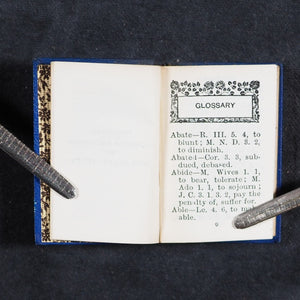 GLOSSARY
Abate—R. III. 5. 4, to
blunt; M. N. D. 3. 2,
to diminish.
Abated—Cor. 3. 3, sub-
dued, debased.
Abide—M. Wives 1. 1,
to bear, tolerate; M.
Ado 1. 1, to sojourn;
J. C. 3. 1. 3. 2, pay the
penalty of, suffer for.
Able—Le. 4. 6, to make
able.
9